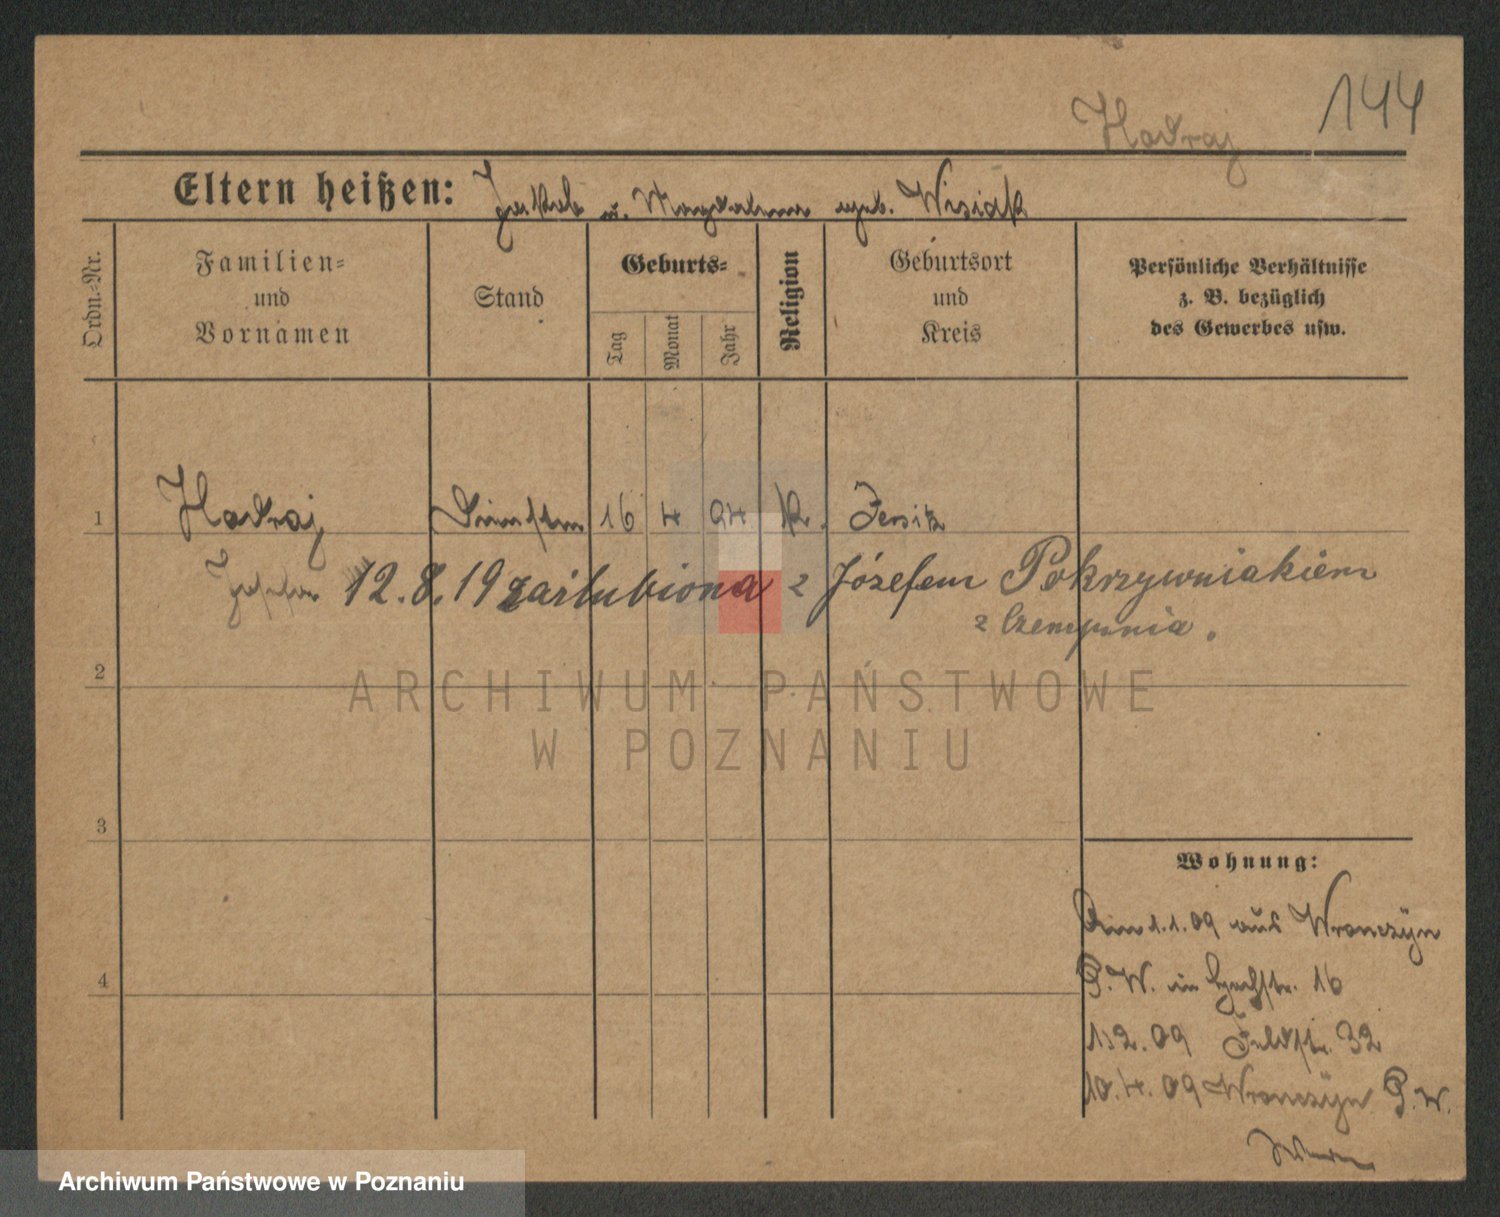 144
Hadraj
Eltern heißen: Jakob u. Magdalena geb. Wisiak
Ordn.-Nr.
Familien-
und
Vornamen
Stand
Geburts-
Tag
Monat
Jahr
Religion
Geburtsort
und
Kreis
Persönliche Verhältnisse
z. B. bezüglich
des Gewerbes usw.
1 Hadraj 16 4 94 K. Jersitz
12.8.19 zaślubiona z Józefem Pokrzywniakiem
z Czempinia.
2
ARCHIWUM PAŃSTWOWE
W POZNANIU
3
Wohnung:
1.1.09 aus Wronczyn
4
P. W. in 16
1.2.09 Feldstr. 32
10.4.09 Wronczyn P. W.
Archiwum Państwowe w Poznaniu